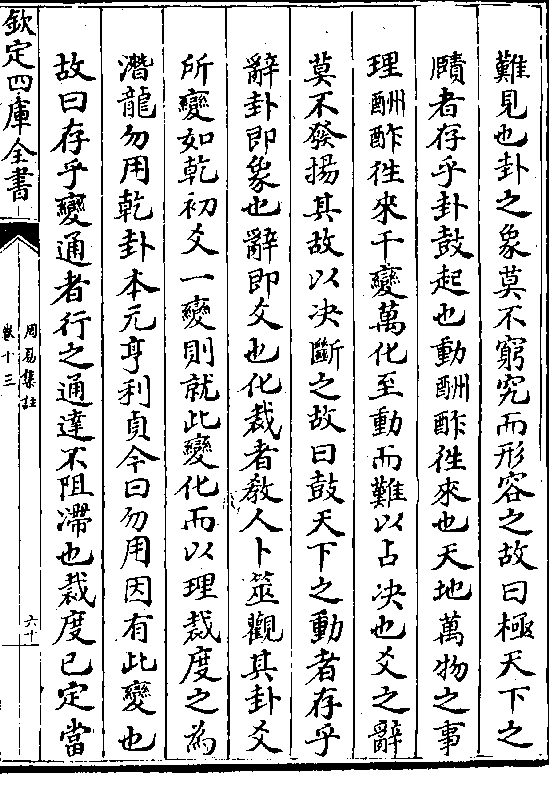 難見也卦之象莫不窮究而形容之故曰極天下之
賾者存乎卦鼓起也動酬酢徃來也天地萬物之事
理酬酢徃來千變萬化至動而難以占决也爻之辭
莫不發揚其故以决斷之故曰鼓天下之動者存乎
辭卦即象也辭即爻也化裁者教人卜筮觀其卦爻
所變如乾初爻一變則就此變化而以理裁度之為
潛龍勿用乾卦本元亨利貞今曰勿用因有此變也
故曰存乎變通者行之通達不阻滯也裁度已定當
欽定四庫全書
周易集註
卷十三
六十